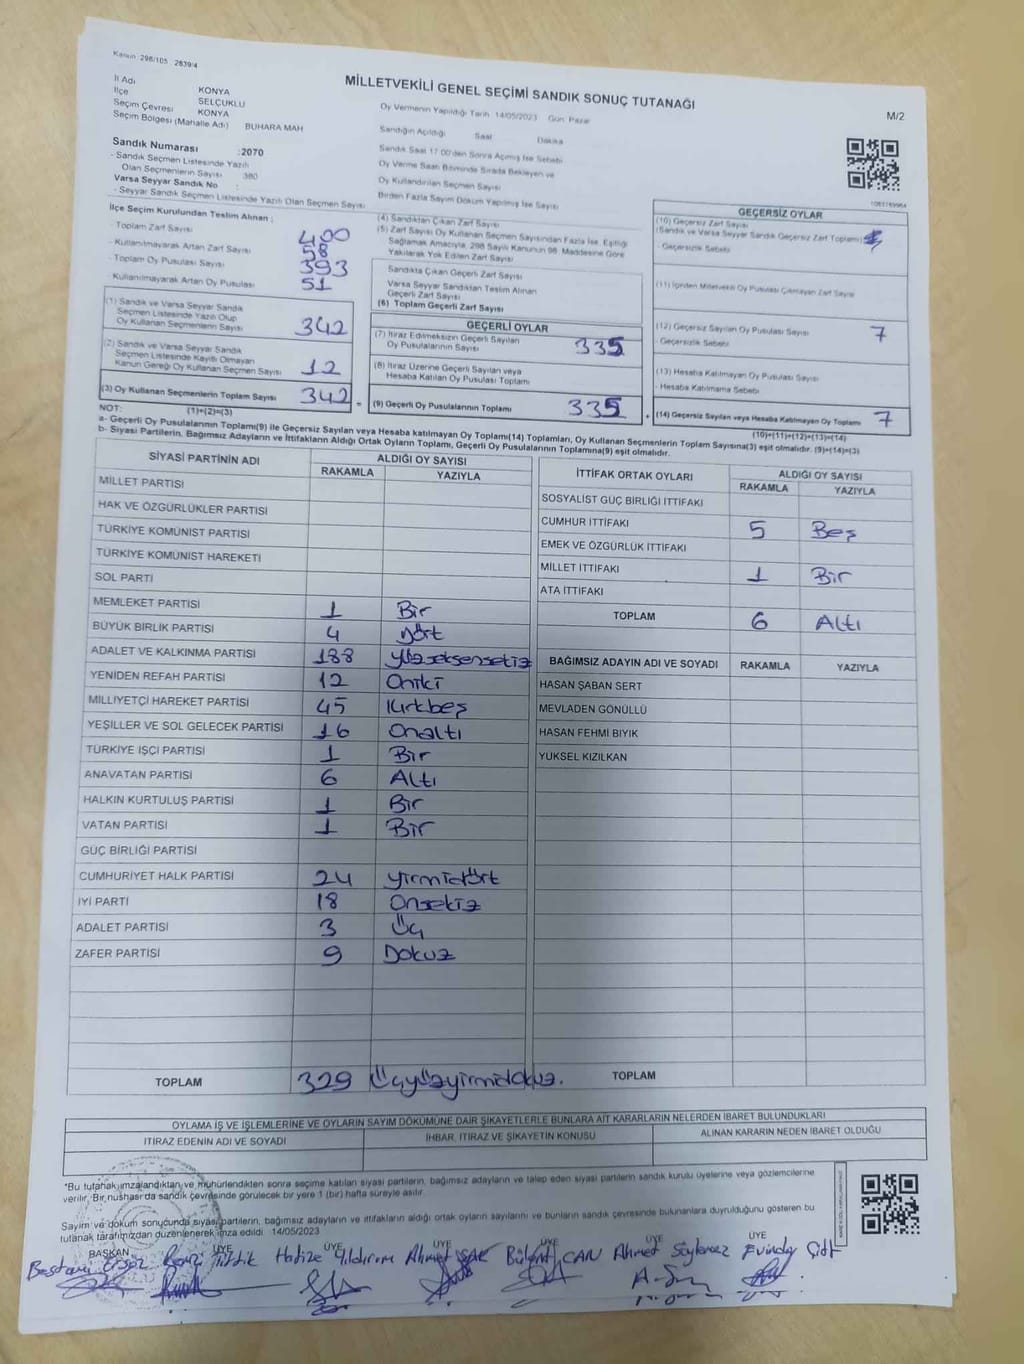 Kanun 298/105 2839/4
MİLLETVEKİLİ GENEL SEÇİMİ SANDIK SONUÇ TUTANAĞI
M/2
İl Adı KONYA
İlçe SELÇUKLU
Seçim Çevresi KONYA
Seçim Bölgesi (Mahalle Adı) BUHARA MAH
Oy Vermenin Yapıldığı Tarih 14/05/2023 Gün Pazar
Sandığın Açıldığı Saat Dakika
Sandık Saat 17.00'den Sonra Açılmış İse Sebebi
Oy Verme Saati Bitiminde Sırada Bekleyen ve
Oy Kullandırılan Seçmen Sayısı
Birden Fazla Sayım Döküm Yapılmış İse Sayısı
Sandık Numarası :2070
- Sandık Seçmen Listesinde Yazılı
Olan Seçmenlerin Sayısı : 380
Varsa Seyyar Sandık No :
- Seyyar Sandık Seçmen Listesinde Yazılı Olan Seçmen Sayısı :
İlçe Seçim Kurulundan Teslim Alınan ;
- Toplam Zarf Sayısı 400
- Kullanılmayarak Artan Zarf Sayısı 58
- Toplam Oy Pusulası Sayısı 393
- Kullanılmayarak Artan Oy Pusulası 51
(1) Sandık ve Varsa Seyyar Sandık
Seçmen Listesinde Yazılı Olup
Oy Kullanan Seçmenlerin Sayısı 342
(2) Sandık ve Varsa Seyyar Sandık
Seçmen Listesinde Kayıtlı Olmayan
Kanun Gereği Oy Kullanan Seçmen Sayısı 12
(3) Oy Kullanan Seçmenlerin Toplam Sayısı 342
(4) Sandıktan Çıkan Zarf Sayısı
(5) Zarf Sayısı Oy Kullanan Seçmen Sayısından Fazla İse, Eşitliği
Sağlamak Amacıyla, 298 Sayılı Kanunun 98. Maddesine Göre
Yakılarak Yok Edilen Zarf Sayısı
Sandıkta Çıkan Geçerli Zarf Sayısı
Varsa Seyyar Sandıktan Teslim Alınan
Geçerli Zarf Sayısı
(6) Toplam Geçerli Zarf Sayısı
GEÇERLİ OYLAR
(7) İtiraz Edilmeksizin Geçerli Sayılan
Oy Pusulalarının Sayısı 335
(8) İtiraz Üzerine Geçerli Sayılan veya
Hesaba Katılan Oy Pusulası Toplamı
(9) Geçerli Oy Pusulalarının Toplamı 335
GEÇERSİZ OYLAR
(10) Geçersiz Zarf Sayısı
(Sandık ve Varsa Seyyar Sandık Geçersiz Zarf Toplamı)
- Geçersizlik Sebebi
(11) İçinden Milletvekili Oy Pusulası Çıkmayan Zarf Sayısı
(12) Geçersiz Sayılan Oy Pusulası Sayısı 7
- Geçersizlik Sebebi
(13) Hesaba Katılmayan Oy Pusulası Sayısı
- Hesaba Katılmama Sebebi
(14) Geçersiz Sayılan veya Hesaba Katılmayan Oy Toplamı 7
NOT: (1)+(2)=(3) (10)+(11)+(12)+(13)=(14)
a- Geçerli Oy Pusulalarının Toplamı(9) ile Geçersiz Sayılan veya Hesaba katılmayan Oy Toplamı(14) Toplamları, Oy Kullanan Seçmenlerin Toplam Sayısına(3) eşit olmalıdır. (9)+(14)=(3)
b- Siyasi Partilerin, Bağımsız Adayların ve İttifakların Aldığı Ortak Oyların Toplamı, Geçerli Oy Pusulalarının Toplamına(9) eşit olmalıdır.
SİYASİ PARTİNİN ADI ALDIĞI OY SAYISI
RAKAMLA YAZIYLA
MİLLET PARTİSİ
HAK VE ÖZGÜRLÜKLER PARTİSİ
TÜRKİYE KOMÜNİST PARTİSİ
TÜRKİYE KOMÜNİST HAREKETİ
SOL PARTİ
MEMLEKET PARTİSİ 1 Bir
BÜYÜK BİRLİK PARTİSİ 4 Dört
ADALET VE KALKINMA PARTİSİ 188 Yüzseksensekiz
YENİDEN REFAH PARTİSİ 12 Oniki
MİLLİYETÇİ HAREKET PARTİSİ 45 Kırkbeş
YEŞİLLER VE SOL GELECEK PARTİSİ 16 Onaltı
TÜRKİYE İŞÇİ PARTİSİ 1 Bir
ANAVATAN PARTİSİ 6 Altı
HALKIN KURTULUŞ PARTİSİ 1 Bir
VATAN PARTİSİ 1 Bir
GÜÇ BİRLİĞİ PARTİSİ
CUMHURİYET HALK PARTİSİ 24 Yirmidört
İYİ PARTİ 18 Onsekiz
ADALET PARTİSİ 3 Üç
ZAFER PARTİSİ 9 Dokuz
TOPLAM 329 Üçyüzyirmidokuz.
İTTİFAK ORTAK OYLARI ALDIĞI OY SAYISI
RAKAMLA YAZIYLA
SOSYALİST GÜÇ BİRLİĞİ İTTİFAKI
CUMHUR İTTİFAKI 5 Beş
EMEK VE ÖZGÜRLÜK İTTİFAKI
MİLLET İTTİFAKI 1 Bir
ATA İTTİFAKI
TOPLAM 6 Altı
BAĞIMSIZ ADAYIN ADI VE SOYADI RAKAMLA YAZIYLA
HASAN ŞABAN SERT
MEVLADEN GÖNÜLLÜ
HASAN FEHMİ BIYIK
YÜKSEL KIZILKAN
TOPLAM
OYLAMA İŞ VE İŞLEMLERİNE VE OYLARIN SAYIM DÖKÜMÜNE DAİR ŞİKAYETLERLE BUNLARA AİT KARARLARIN NELERDEN İBARET BULUNDUKLARI
İTİRAZ EDENİN ADI VE SOYADI İHBAR, İTİRAZ VE ŞİKAYETİN KONUSU ALINAN KARARIN NEDEN İBARET OLDUĞU
"Bu tutanak imzalandıktan ve mühürlendikten sonra seçime katılan siyasi partilerin, bağımsız adayların ve talep eden siyasi partilerin sandık kurulu üyelerine veya gözlemcilerine
verilir. Bir nüshası da sandık çevresinde görülecek bir yere 1 (bir) hafta süreyle asılır.
Sayım ve döküm sonucunda siyasi partilerin, bağımsız adayların ve ittifakların aldığı ortak oyların sayılarını ve bunların sandık çevresinde bulunanlara duyrulduğunu gösteren bu
tutanak tarafımızdan düzenlenerek imza edildi 14/05/2023
BAŞKAN ÜYE ÜYE ÜYE ÜYE ÜYE
Hatice Yıldırım Ahmet Bülent CAN Ahmet Söylemez